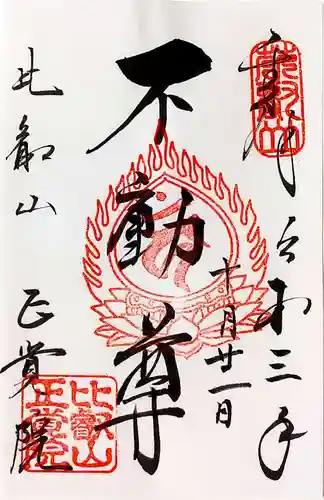 奉拝 令和三年
十月廿一日
不動尊
比叡山 正覚院
比叡山
正覚院